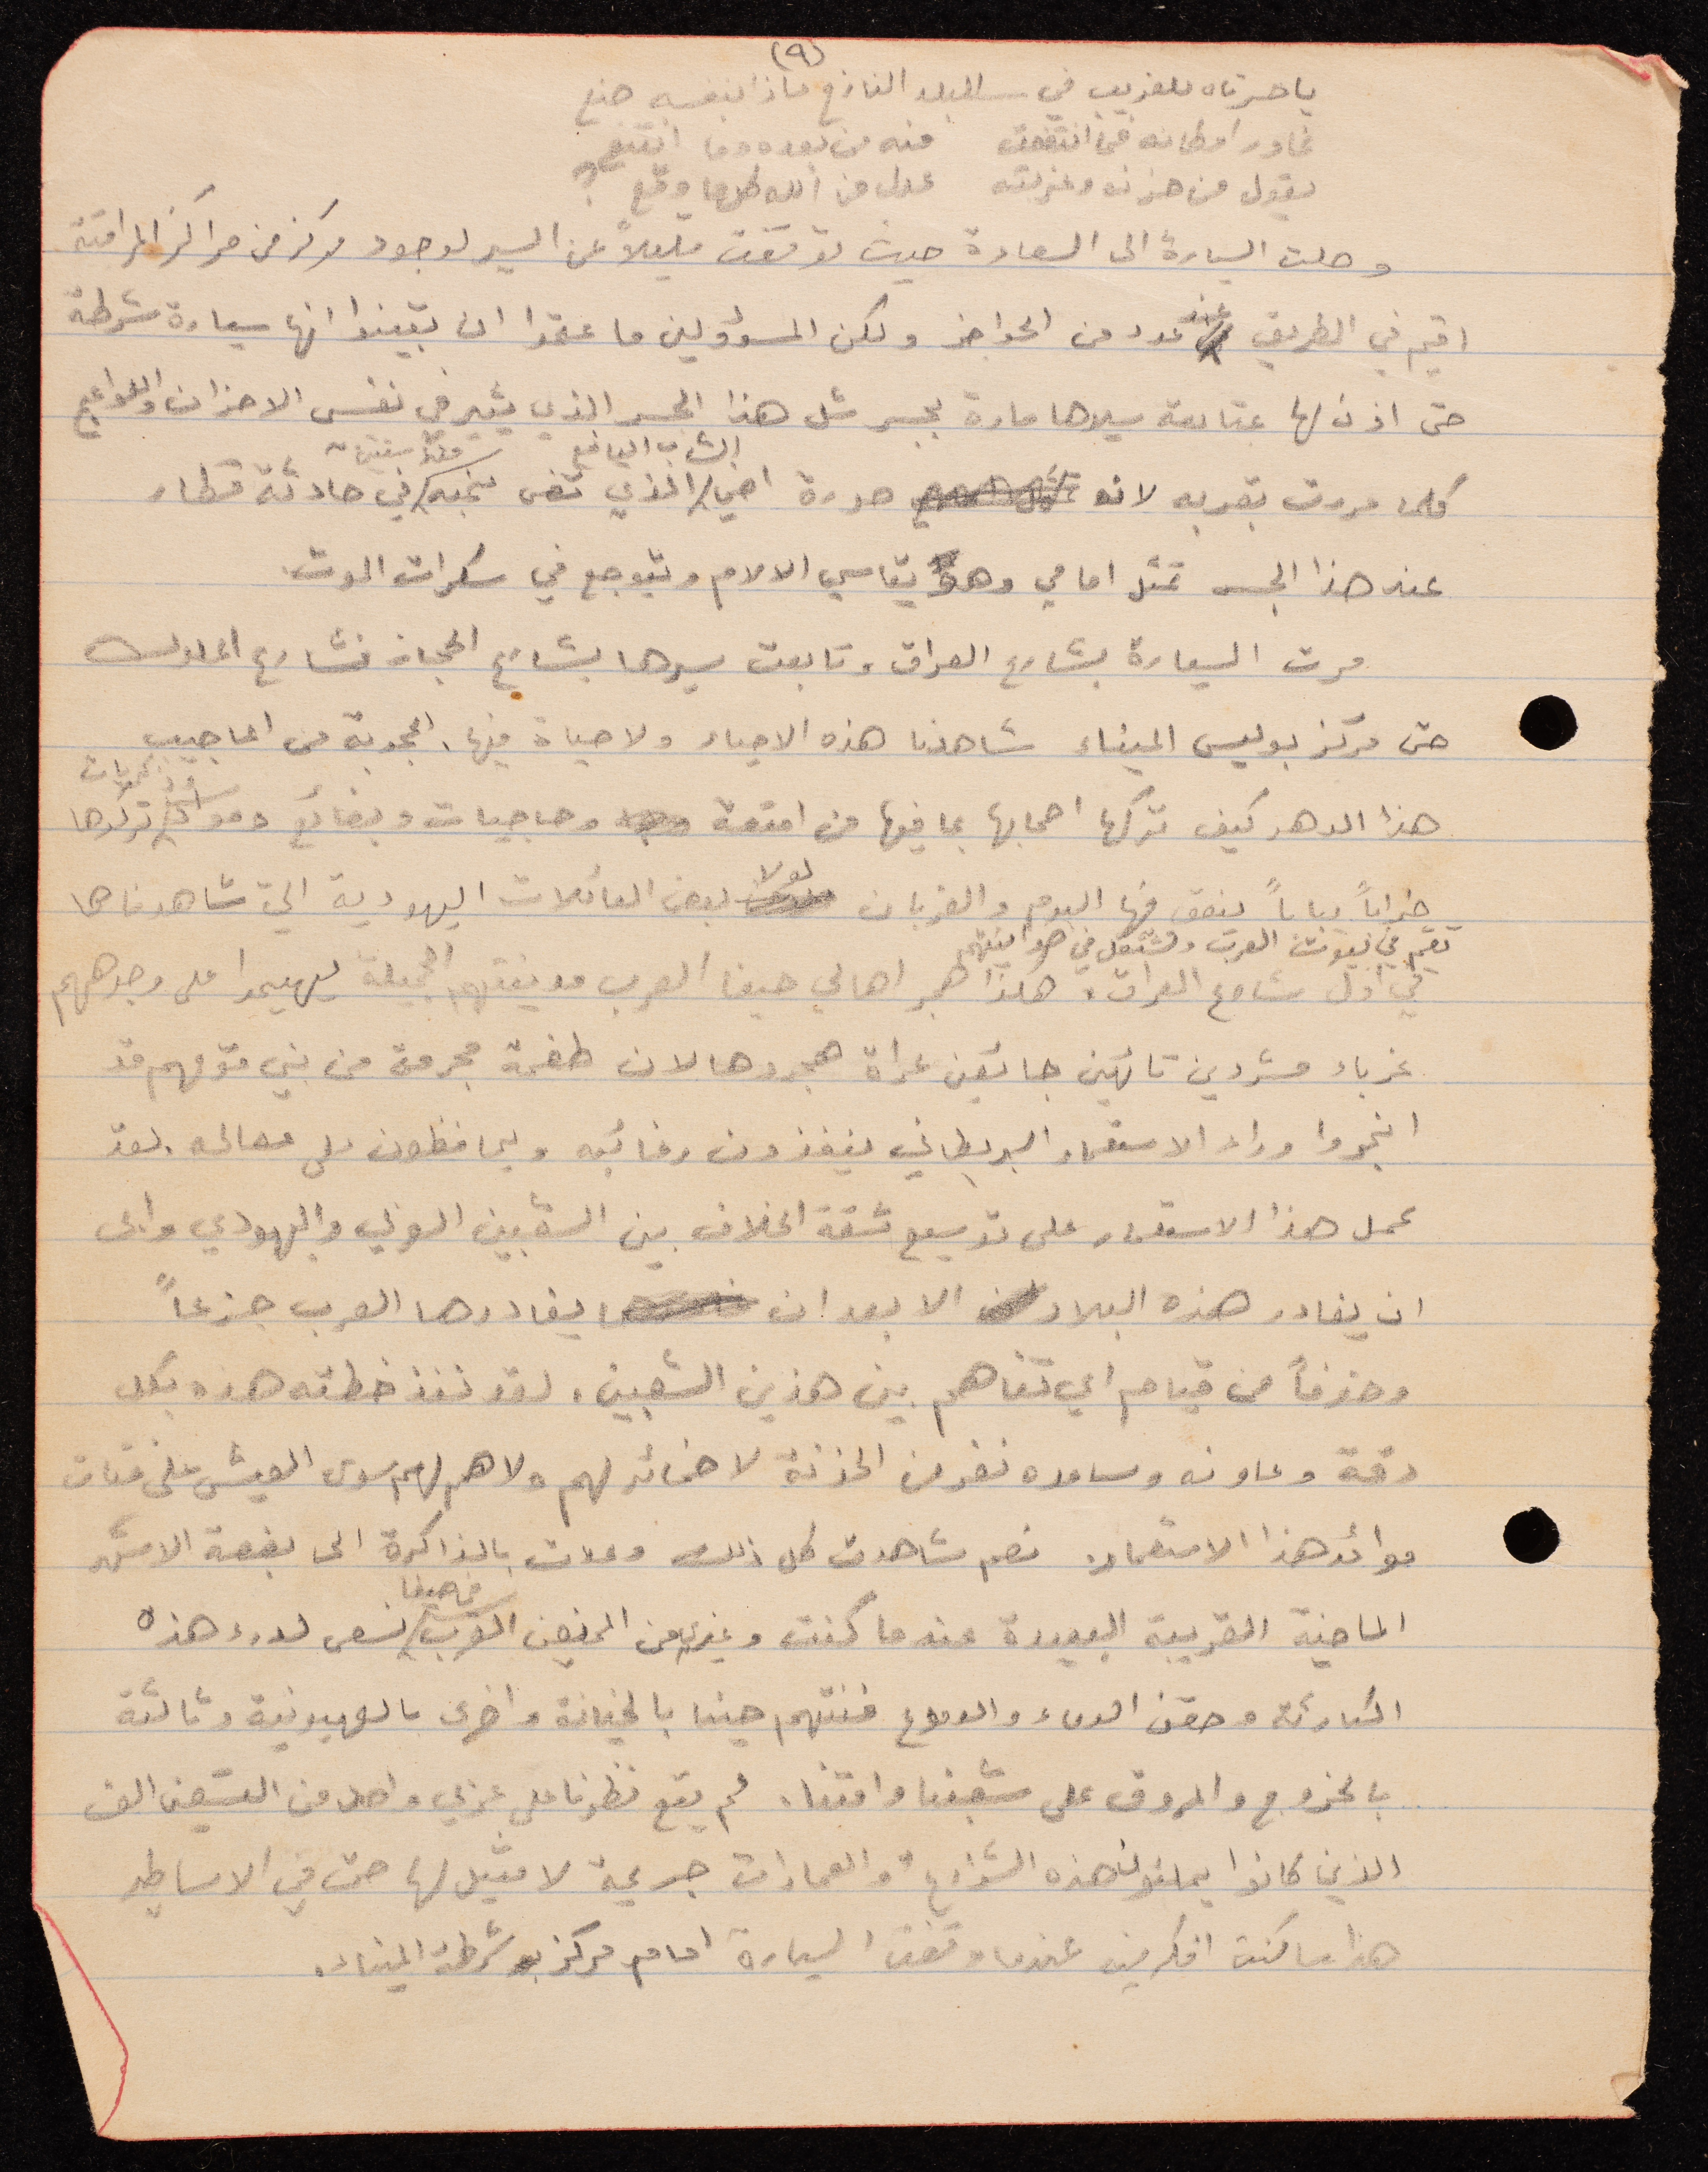 (٩)
يا حسرتاه للغريب في البلد النازح ماذا بنفسه صنع
فارق احبابه فما انتفعت منه من بعده وما انتفع
يقول من حزنه وغربته عدل من الله كلما وقع
وصلت السيارة الى السعادة حيث توقفت قليلاً عن السير لوجود مركز من مراكز المراقبة
اقيم في الطريق عند عدد من الحواجز ولكن المسؤولين ما عتموا ان تبينوا انها سيارة شرطة
حتى اذن لها بمتابعة سيرها مارة بجسر شل هذا الجسر الذي يثير في نفسي الاحزان واللواعج
الشاب اليافع منذ سنتين
كلما مررت بقربه لانه صورة اخي الذي قضى نحبه في حادثة قطار
عند هذا الجسر تمثل امامي وهو يقاسي الالام ويتوجع في سكرات الموت.
مرت السيارة بشارع العراق وتابعت سيرها بشارع الحجاز فشارع الملوك
حتى مركز بوليس الميناء شاهدنا هذه الاحياء ولا حياة فيها. اعجوبة من اعاجيب
هذا الدهر كيف تركها اصحابها بما فيها من امتعة وحاجيات وبضائع ومواشي تركوها
خراباً يباباً ينعق فيها البوم والغربان لولا بعض العائلات اليهودية التي شاهدناها
تقيم في بيوت العرب وتشتغل في حوانيتهم
في اول شارع العراق. هكذا هجر اهالي حيفا العرب مدينتهم الجميلة ليهيموا على وجوههم
غرباء مشردين تائهين جائعين عراة هجروها لان طغمة مجرمة من بني قومهم قد
انجروا وراء الاستعمار البريطاني ينفذون رغائبه ويحافظون على مصالحه. لقد
عمل هذا الاستعمار على توسيع شقة الخلاف بين الشعبين العربي واليهودي وابى
ان يغادر هذه البلاد الا بعد ان يغادرها العرب جزعاً
وخوفاً من قيام اي تفاهم بين هذين الشعبين. لقد نفذ خطته هذه بكل
دقة وعاونه وساعده نفر من الخونة لا ضمائر لهم ولا هم لهم سوى العيش على فتات
موائد هذا الاستعمار. نعم شاهدت كل ذلك وعدت بالذاكرة الى بضعة الاشهر
في حيفا
الماضية القريبة البعيدة عندما كنت وغيري من المخلصين العرب نسعى لدرء هذه
الكارثة وحقن الدماء والدموع فنتهم حينا بالخيانة واخرى بالصهيونية وثالثة
بالخروج والمروق على شعبنا وامتنا. لم يقع نظرنا على عربي واحد من السبعين الف
الذين كانوا يملئون هذه الشوارع والعمارات جريمة لا مثيل لها حتى في الاساطير
هذا ما كنت افكر فيه عندما وقفت السيارة امام مركز شرطة الميناء.